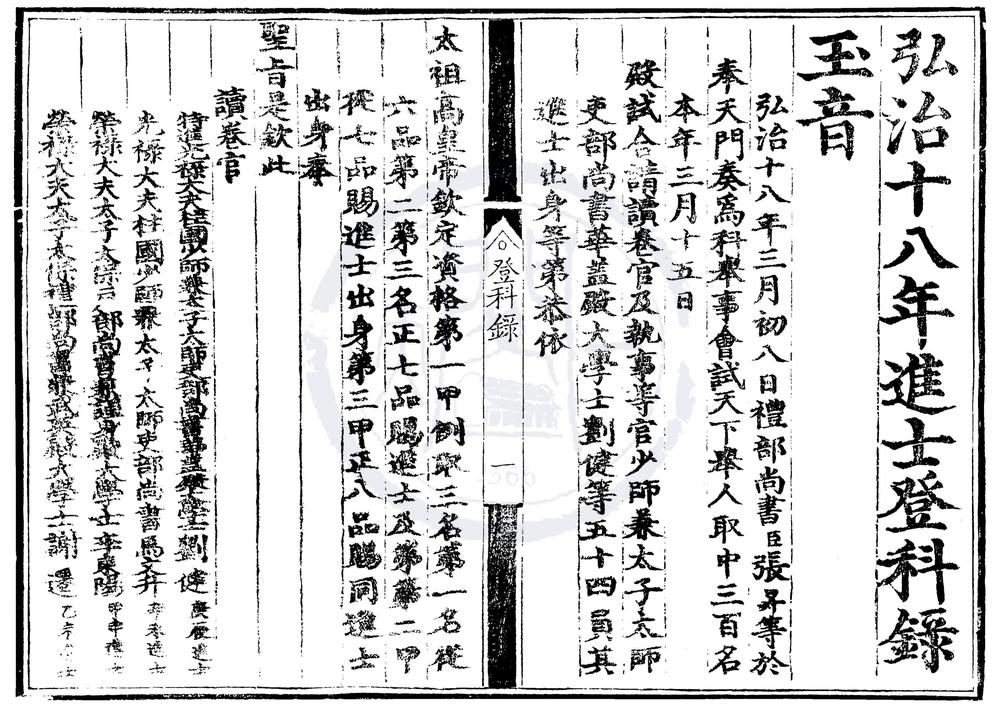 弘治十八年進士登科錄
玉音
弘治十八年三月初八日禮部尚書臣張昇等於
奉天門奏爲科舉事會試天下舉人取中三百名
本年三月十五日
殿試合請讀卷官及執事等官少師兼太子太師
吏部尚書華盖殿大學士劉健等五十四員其
進士出身等第恭依
登科錄
一
太祖高皇帝欽定資格第一甲例取三名第一名從
六品第二第三名正七品賜進士及第第二甲
從七品賜進士出身第三甲正八品賜同進士
出身奉
聖旨是欽此
讀卷官
特進光祿大夫柱國少師兼太子太師吏部尚書華盖殿大學士劉健 庚辰進士
光祿大夫柱國少師兼太子太師吏部尚書馬文升 辛未進士
榮祿大夫太子太保戶部尚書兼謹身殿大學士李東陽 甲申進士
榮祿大夫太子太保禮部尚書兼武英殿大學士謝遷 乙未進士